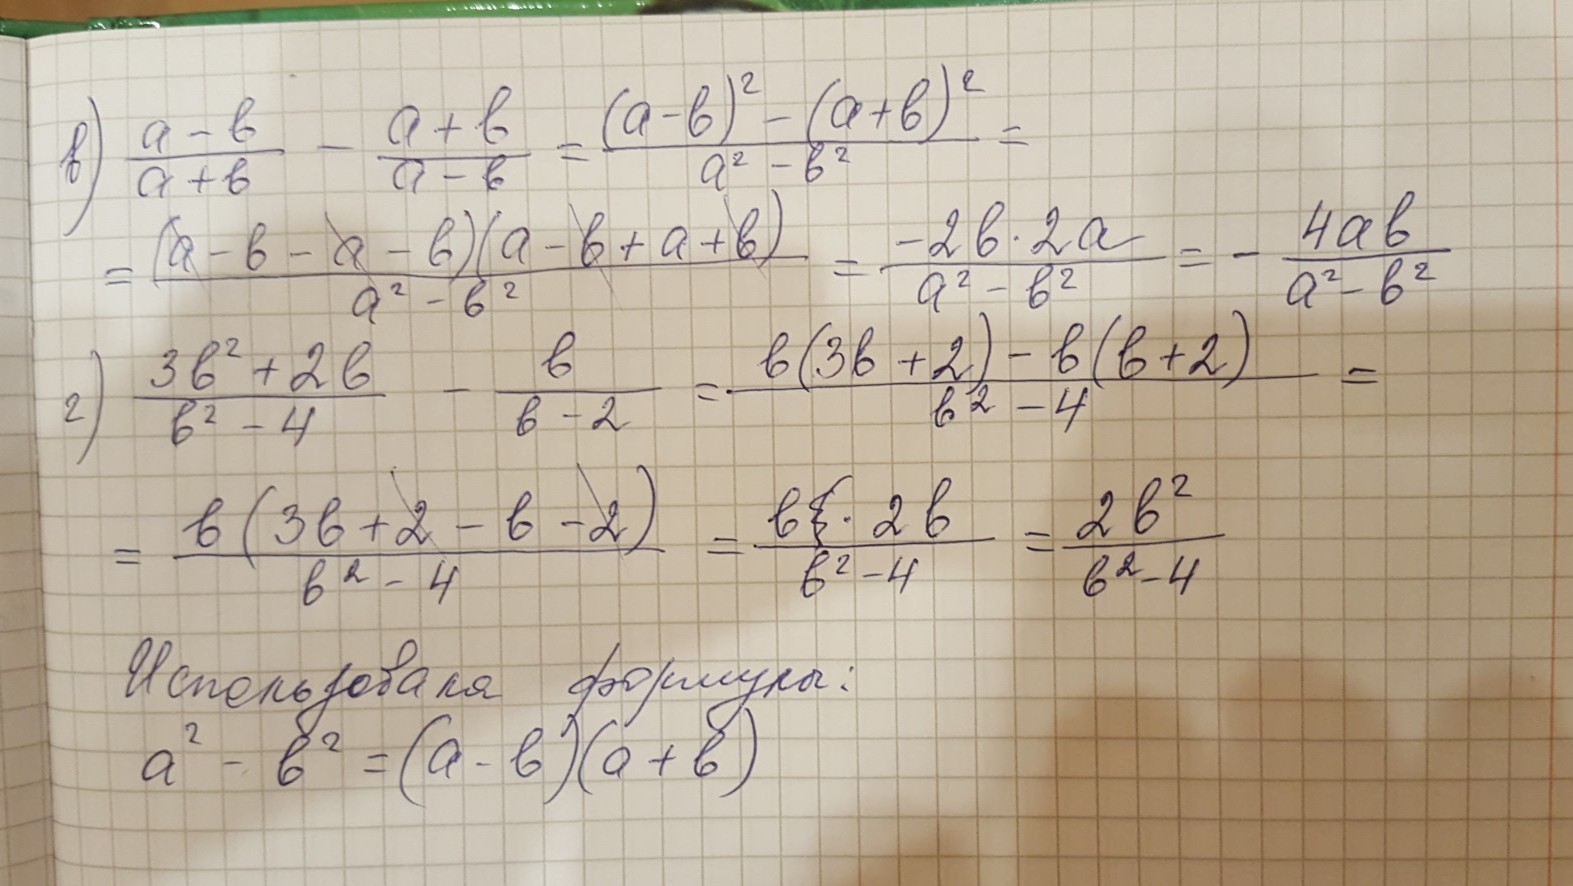 в) (a - b)/(a + b) - (a + b)/(a - b) = ((a - b)² - (a + b)²)/(a² - b²) =
= ((a - b - a - b)(a - b + a + b))/(a² - b²) = (-2b · 2a)/(a² - b²) = - 4ab/(a² - b²)
г) (3b² + 2b)/(b² - 4) - b/(b - 2) = (b(3b + 2) - b(b + 2))/(b² - 4) =
= (b(3b + 2 - b - 2))/(b² - 4) = (b · 2b)/(b² - 4) = 2b²/(b² - 4)
Использовала формулы:
a² - b² = (a - b)(a + b)